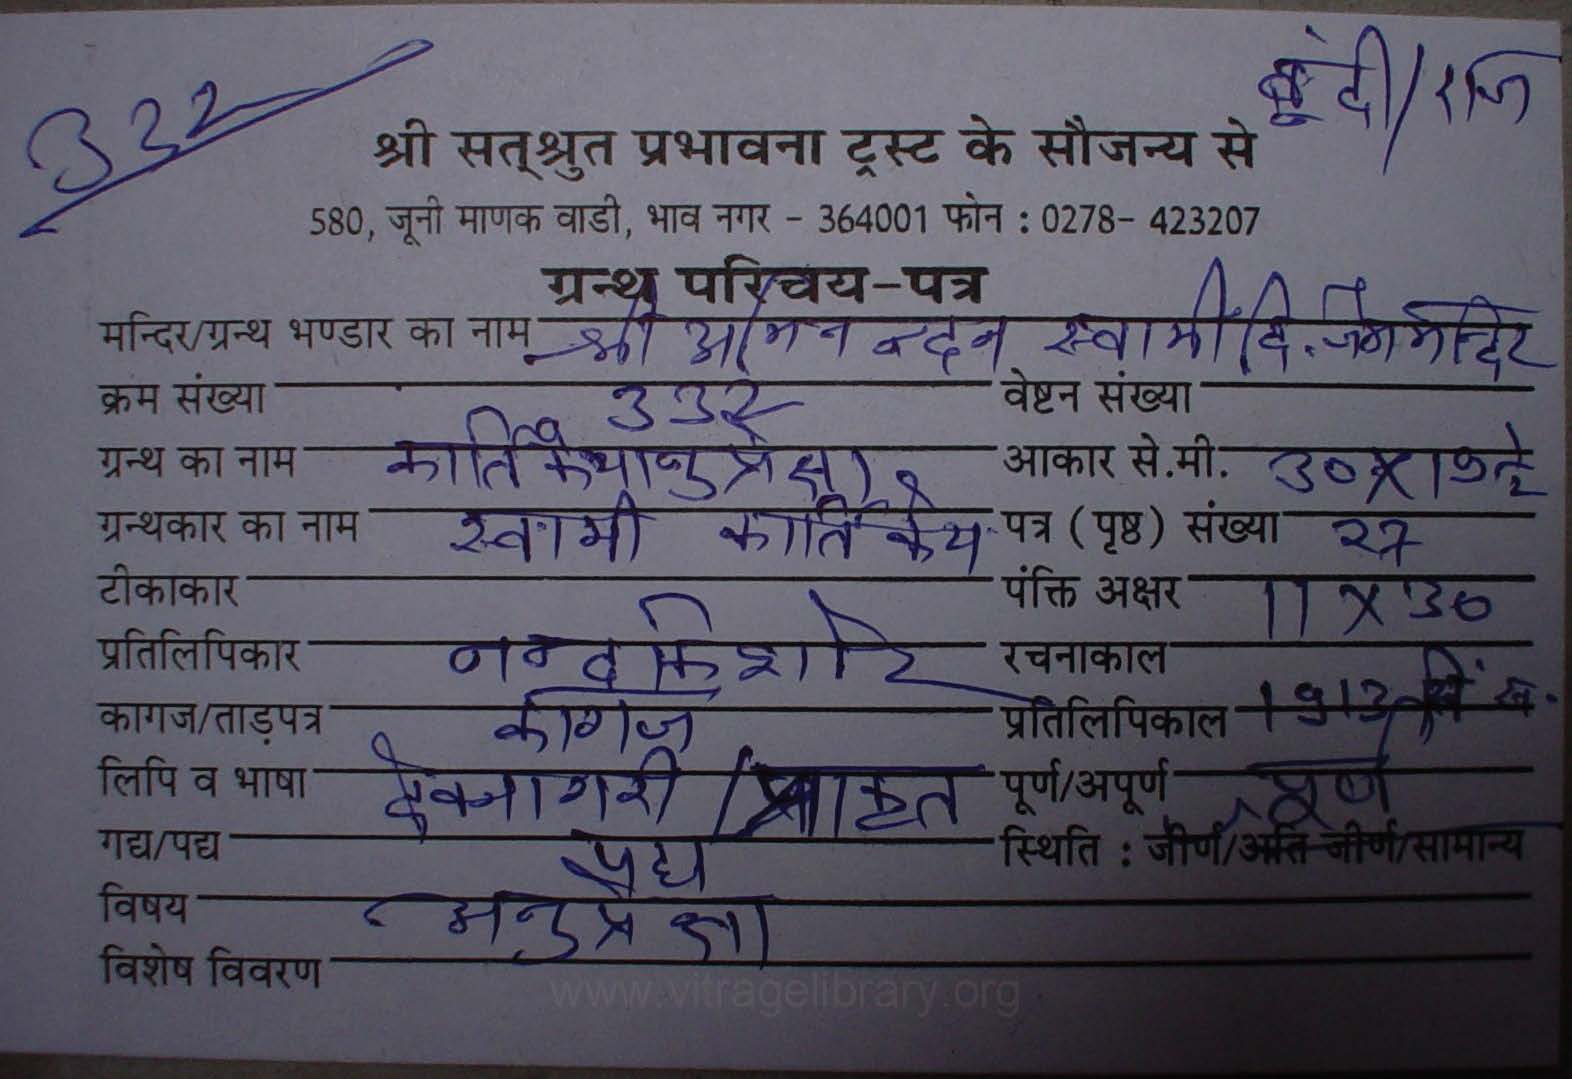 332
बूंदी/राज
श्री सत्श्रुत प्रभावना ट्रस्ट के सौजन्य से
580, जूनी माणक वाडी, भाव नगर - 364001 फोन : 0278- 423207
ग्रन्थ परिचय-पत्र
मन्दिर/ग्रन्थ भण्डार का नाम श्री अभिनन्दन स्वामी दि. जैन मन्दिर
क्रम संख्या 332 वेष्टन संख्या
ग्रन्थ का नाम कार्तिकेयानुप्रेक्षा आकार से.मी. 30X
ग्रन्थकार का नाम स्वामी कार्तिकेय पत्र (पृष्ठ) संख्या २७
टीकाकार पंक्ति अक्षर 11 X 30
प्रतिलिपिकार नन्दकिशोर रचनाकाल
कागज/ताड़पत्र कागज प्रतिलिपिकाल 1913
लिपि व भाषा देवनागरी / प्राकृत पूर्ण/अपूर्ण पूर्ण
गद्य/पद्य पद्य स्थिति : जीर्ण/अति जीर्ण/सामान्य
विषय अनुप्रेक्षा
विशेष विवरण
www.vitragelibrary.org